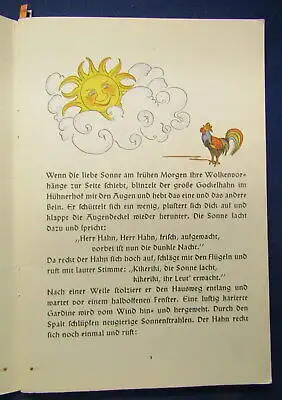 Wenn die liebe Sonne am frühen Morgen ihre Wolkenvor-
hänge zur Seite schiebt, blinzelt der große Gockelhahn im
Hühnerhof mit den Augen und hebt das eine und das andere
Bein. Er schüttelt sich ein wenig, plustert sich dick auf und
und klappt die Augendeckel wieder herunter. Die Sonne lacht
dazu und spricht:
„Herr Hahn, Herr Hahn, frisch, aufgewacht,
vorbei ist nun die dunkle Nacht.“
Da reckt der Hahn sich hoch auf, schlägt mit den Flügeln und
ruft mit lauter Stimme: „Kikeriki, die Sonne lacht,
kikeriki, ihr Leut’ erwacht.“
Nach einer Weile stolziert er den Hausweg entlang und
wartet vor einem halboffenen Fenster. Eine lustig karierte
Gardine wird vom Wind hin- und hergeweht. Durch den
Spalt schlüpfen neugierige Sonnenstrahlen. Der Hahn reckt
sich noch einmal und ruft: